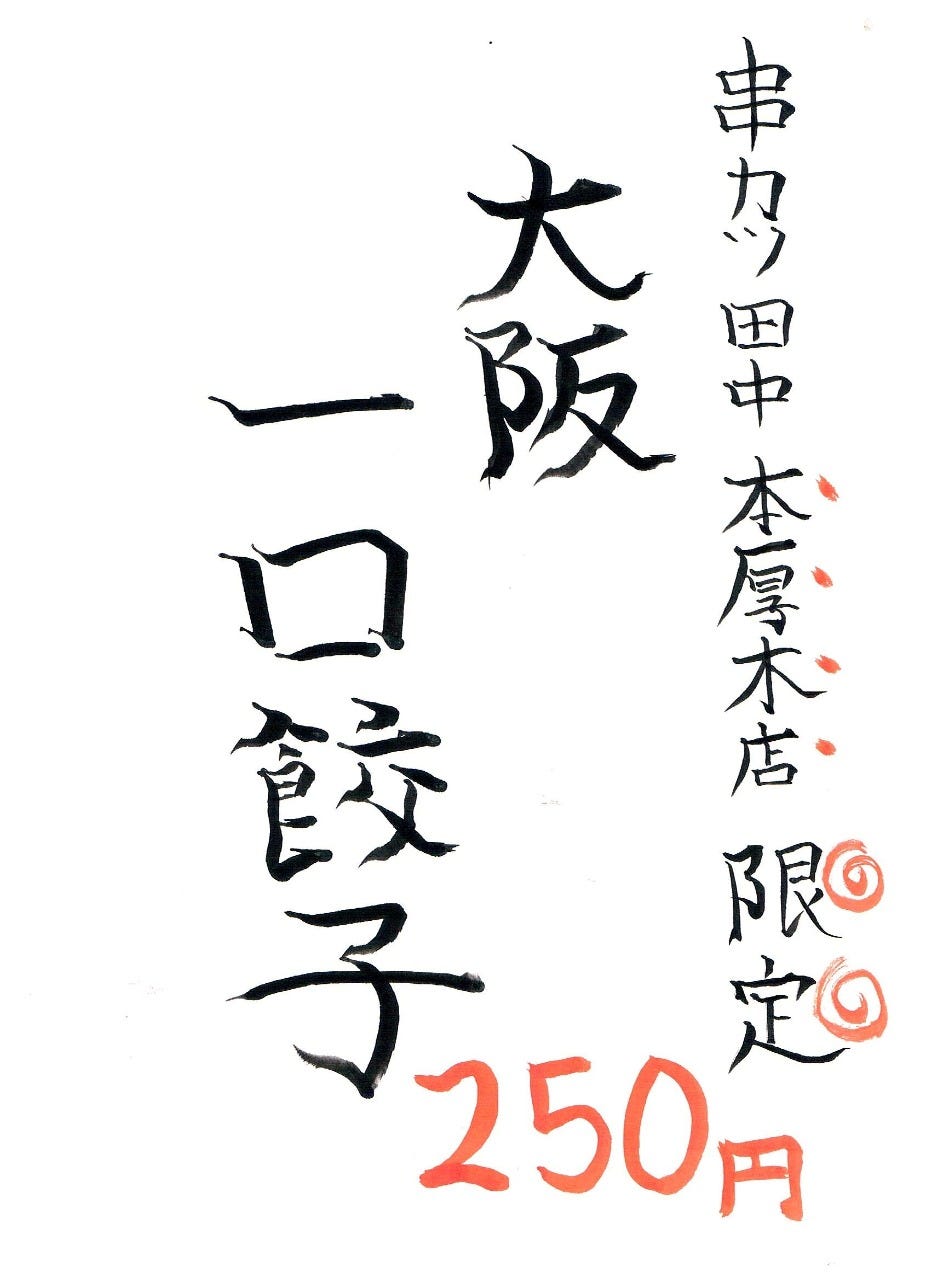 串カツ田中 本厚木店 限定
大阪
一口餃子
250円